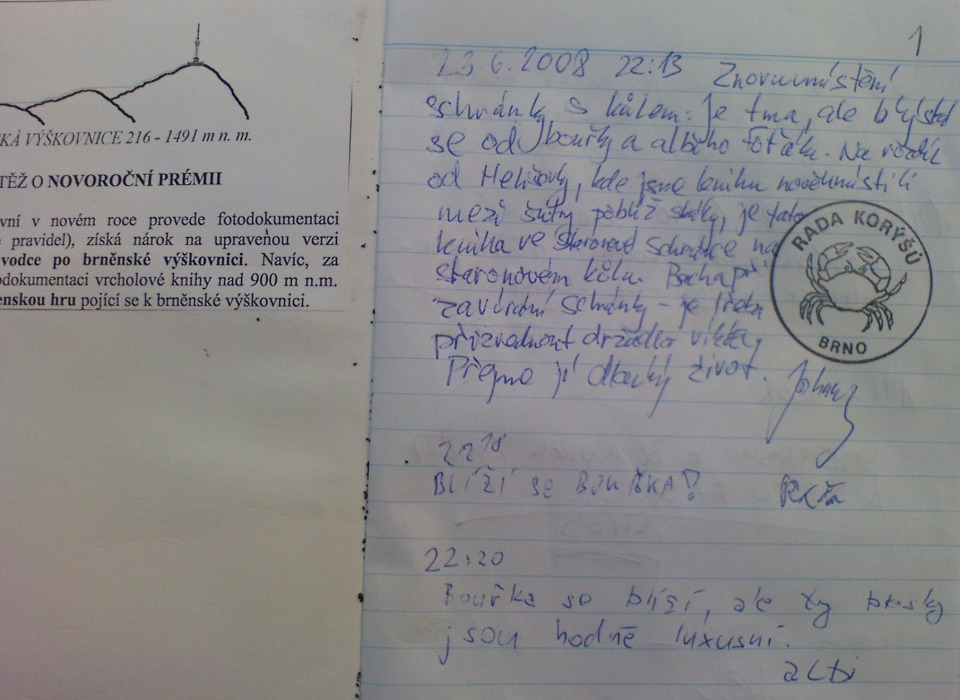 KÁ VÝŠKOVNICE 216 - 1491 m n. m.
TĚŽ O NOVOROČNÍ PRÉMII
vní v novém roce provede fotodokumentaci
pravidel), získá nárok na upravenou verzi
vodce po brněnské výškovnici. Navíc, za
odokumentaci vrcholové knihy nad 900 m n.m.
enskou hru pojící se k brněnské výškovnici.
1
23.6.2008 22:13 Znovuumístění
schránky s kůlem: je tma, ale blýská
se od bouřky a albiho foťáku. Na rozdíl
od Helišovky, kde jsme knihu nověumístili
mezi šutry poblíž skály, je tato
kniha ve staronové schránce na
staronovém kůlu. Bacha při
zavírání schránky - je třeba
přizvednout držadlo víka,
Přejme jí dlouhý život.
RADA KORÝŠŮ
BRNO
22 18
BLÍŽÍ SE BOUŘKA!
22:20
Bouřka se blíží, ale ty blesky
jsou hodně luxusní.
albi